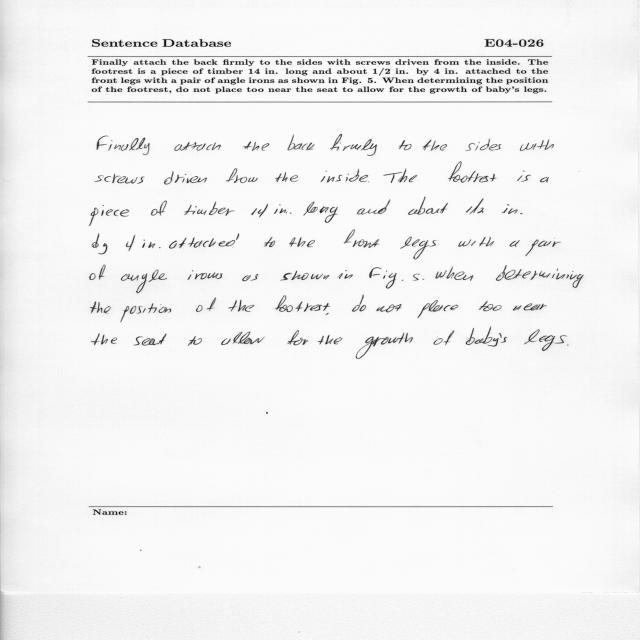 Sentence Database E04-026
Finally attach the back firmly to the sides with screws driven from the inside. The
footrest is a piece of timber 14 in. long and about 1/2 in. by 4 in. attached to the
front legs with a pair of angle irons as shown in Fig. 5. When determining the position
of the footrest, do not place too near the seat to allow for the growth of baby's legs.
Finally attach the back firmly to the sides with
screws driven from the inside. The footrest is a
piece of timber 14 in. long and about 1/2 in.
by 4 in. attached to the front legs with a pair
of angle irons as shown in Fig. 5. when determining
the position of the footrest, do not place too near
the seat to allow for the growth of baby's legs.
Name: